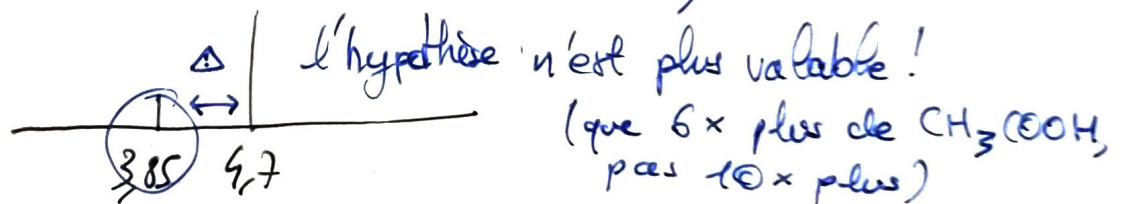 ⚠ l'hypothèse n'est plus valable !
(que 6× plus de CH₃COOH,
3,85 4,7 pas 10× plus)